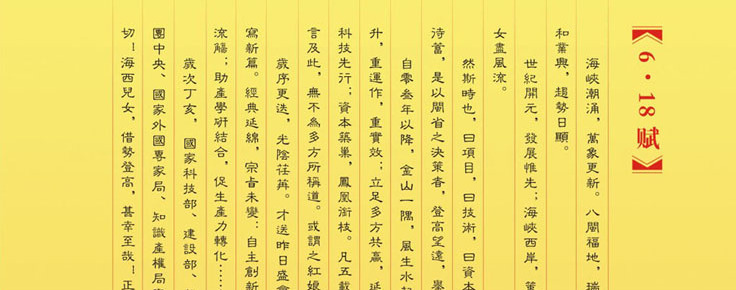 《6·18赋》
海峽潮涌，萬象更新。八閩福地，瑞
和業興，趨勢日顯。
世紀開元，發展惟先；海峽西岸，篳
女盡風流。
然斯時也，曰項目，曰技術，曰資本
待當，是以閩省之決策者，登高望遠，舉
自零叁年以降，金山一隅，風生水起
升，重運作，重實效；立足多方共贏，延
科技先行；資本築巢，鳳凰銜枝。凡五載
言及此，無不為多方所稱道。或謂之紅娘
歲序更迭，光陰荏苒。才送昨日盛會
寫新篇。經典延綿，宗旨未變：自主創新
流觴；助產學研結合，促生產力轉化……
歲次丁亥，國家科技部、建設部、
團中央、國家外國專家局、知識產權局
切！海西兒女，借勢登高，甚幸至哉！正